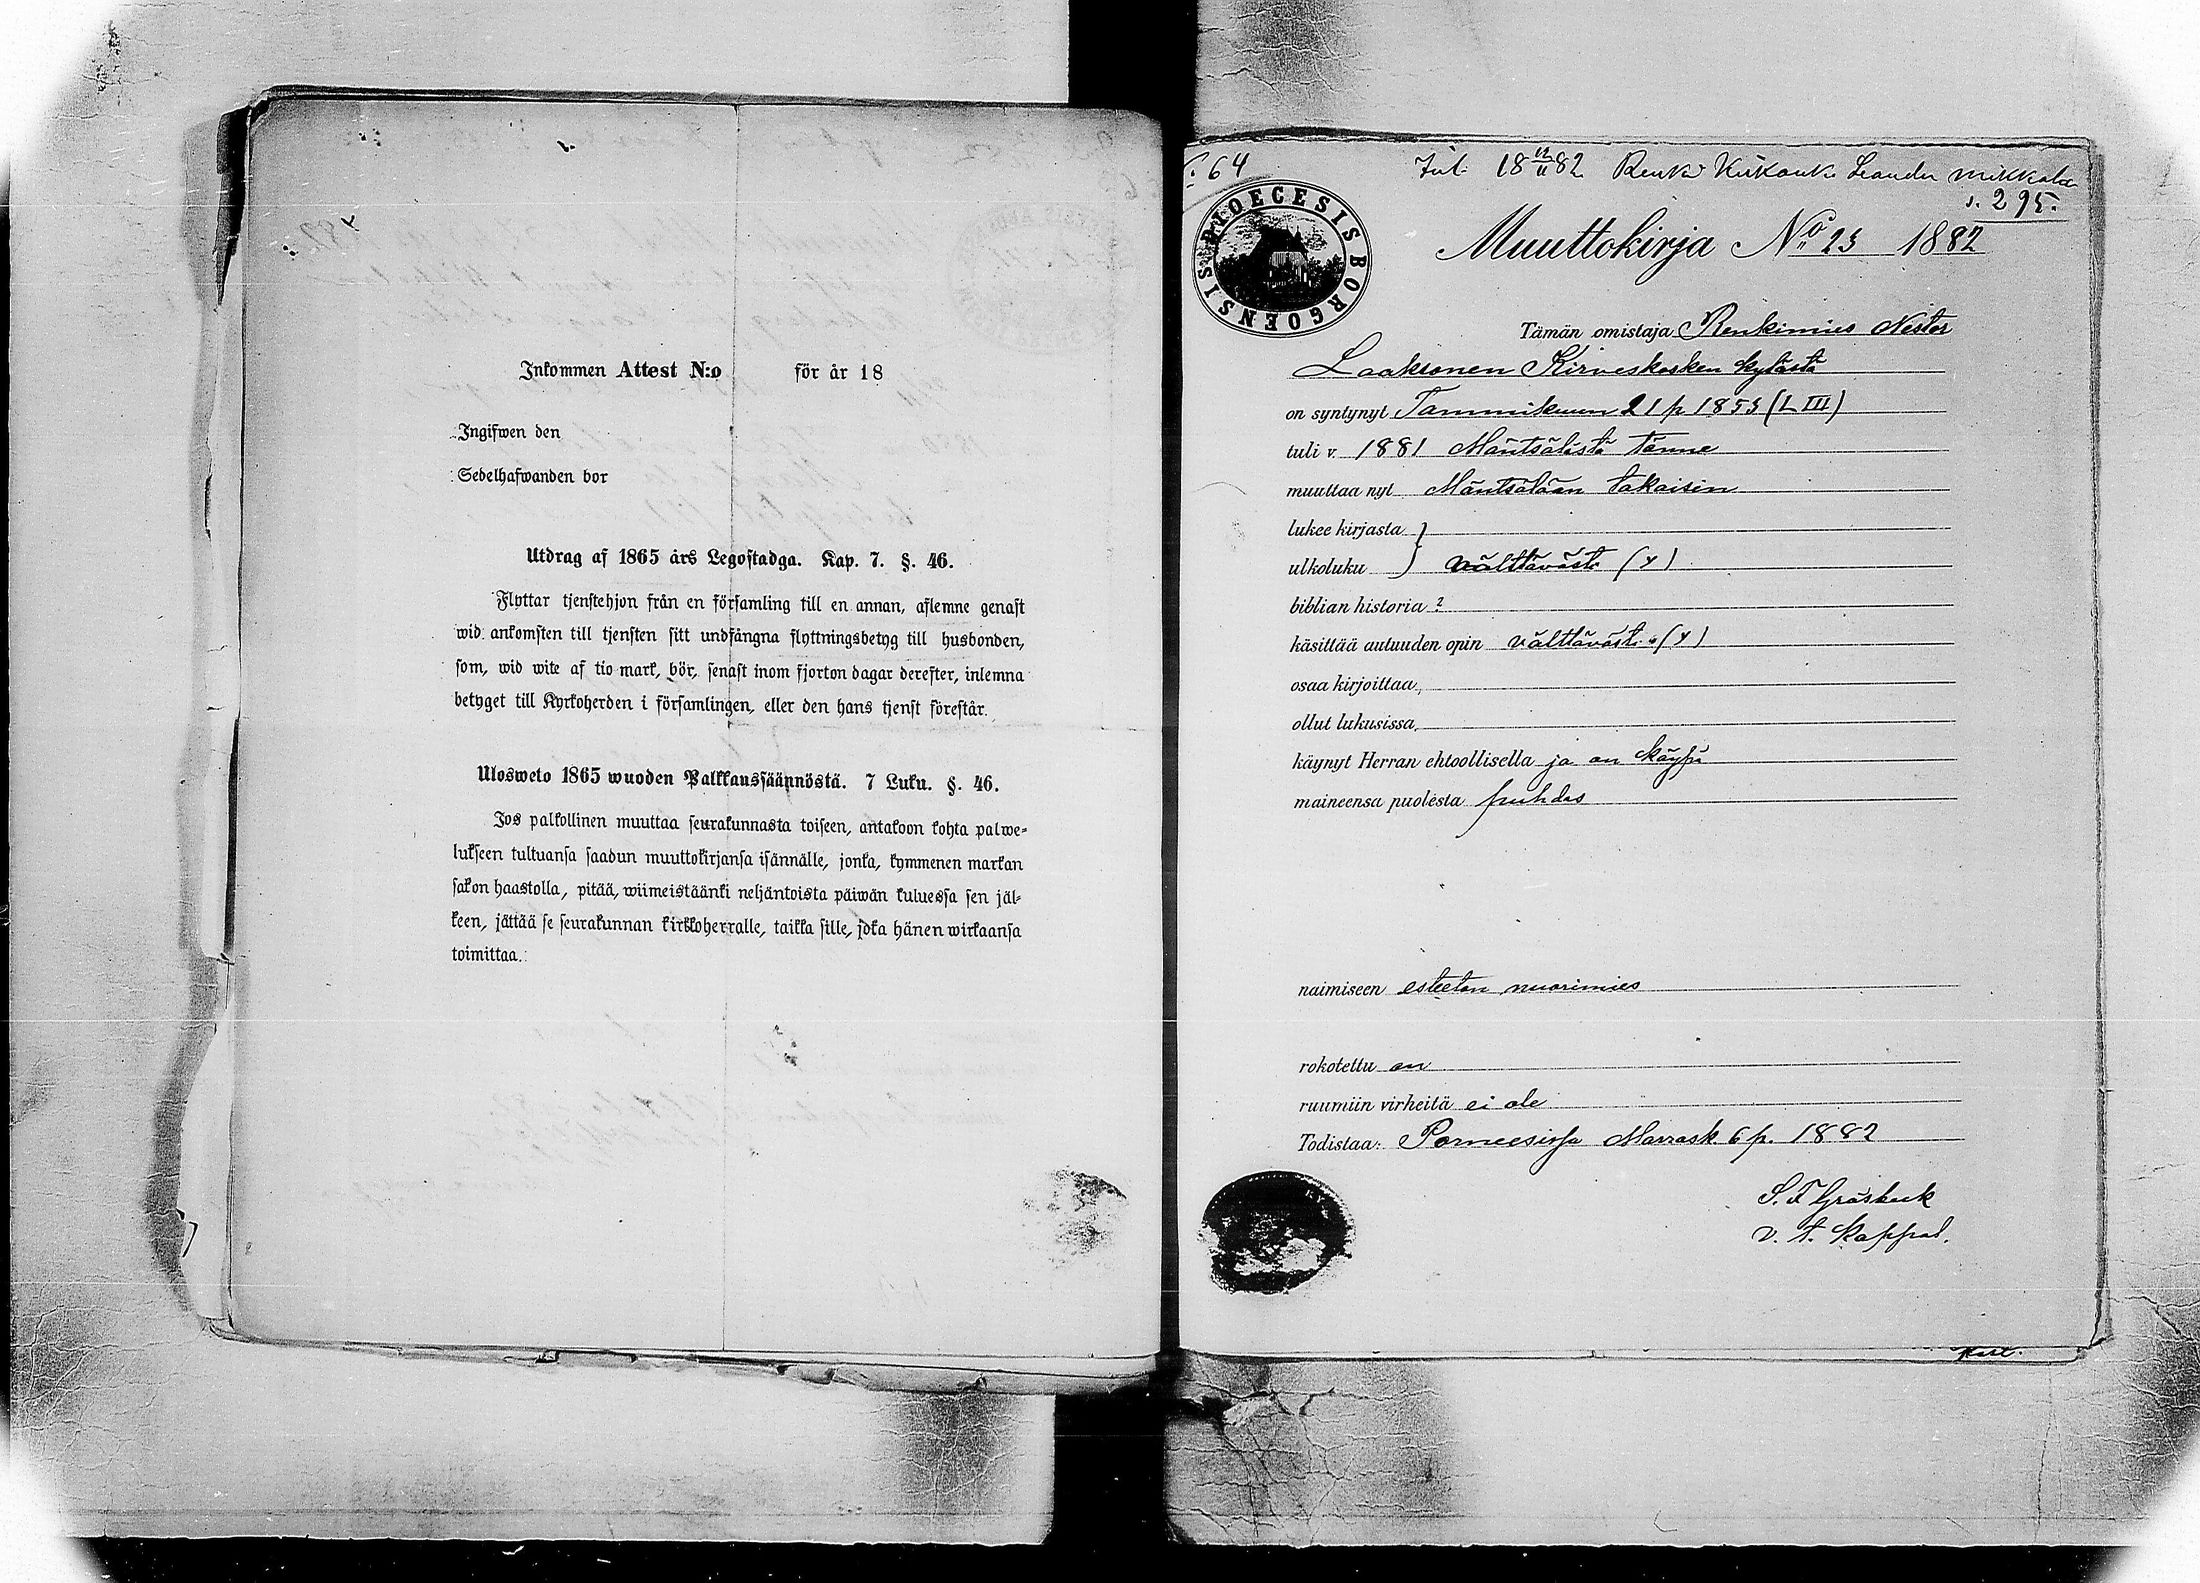 Inkommen Attest N:o för år 18
Ingifwen den
Sedelhafwanden bor
Utdrag af 1865 års Legostadga. Kap. 7. §. 46.
Flyttar tjenstehjon från en församling till en annan, aflemne genast
wid ankomsten till tjensten sitt undfångna flyttningsbetyg till husbonden,
som, wid wite af tio mark, bör, senast inom fjorton dagar derefter, inlemna
betyget till Kyrkoherden i församlingen, eller den hans tjenst förestår.
Ulosweto 1865 wuoden Palkkaussäännöstä. 7 Luku. §. 46.
Jos palkollinen muuttaa seurakunnasta toiseen, antakoon kohta palwe-
lukseen tultuansa saadun muuttokirjansa isännälle, jonka, kymmenen markan
sakon haastolla, pitää, wiimeistäänki neljäntoista päiwän kuluessa sen jäl-
keen, jättää se seurakunnan kirkkoherralle, taikka sille, joka hänen wirkaansa
toimittaa.
64 18 12/11 82 Renki Leander Mikkola
s. 295.
DIOECESIS BORGOENSIS
Muuttokirja No 23 1882
Tämän omistaja Renkimies Nestor
Laaksonen Kirveskosken kylästä
on syntynyt Tammikuun 21 p 1853 (L III)
tuli v. 1881 Mäntsälästä tänne
muuttaa nyt Mäntsälään takaisin
lukee kirjasta }
ulkoluku } välttävästi (y)
biblian historia ?
käsittää autuuden opin välttäväst. (y)
osaa kirjoittaa,
ollut lukusissa,
käynyt Herran ehtoollisella ja on käypä
maineensa puolesta puhdas
naimiseen esteetön nuorimies
rokotettu on
ruumiin virheitä ei ole
Todistaa: Porneesissa Marrask 6 p. 1882
S. F Gräsbeck
v. t. Kappal.